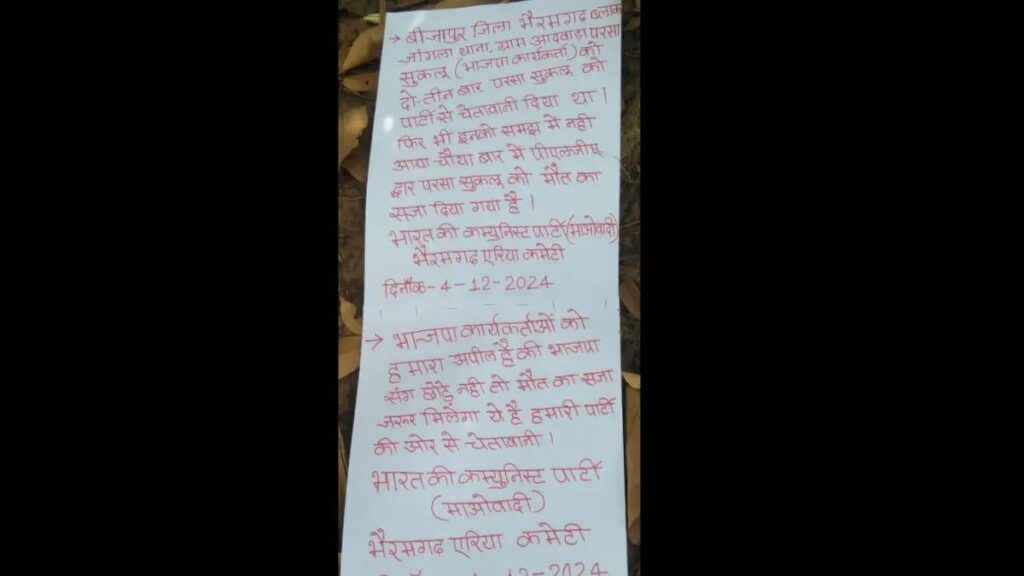 → बीजापुर जिला भैरमगढ ब्लाक
जांगला थाना, ग्राम आदवाड़ा परसा
सुकलू (भाजपा कार्यकर्ता) को
दो-तीन बार परसा सुकलू को
पार्टी से चेतावानी दिया था।
फिर भी इनको समझ में नही
आया चौथा बार में पीएलजीए
द्वार परसा सुकलू को मौत का
सजा दिया गया है।
भारत की कम्युनिस्ट पार्टी (माओवादी)
भैरमगढ एरिया कमेटी
दिनाँक-4-12-2024
→ भाजपा कार्यकर्ताओं को
हमारा अपील है की भाजपा
संग छोड़े नही तो मौत का सजा
जरूर मिलेगा ये है हमारी पार्टी
की ओर से चेतावानी।
भारत की कम्युनिस्ट पार्टी
(माओवादी)
भैरमगढ एरिया कमेटी
12-2024